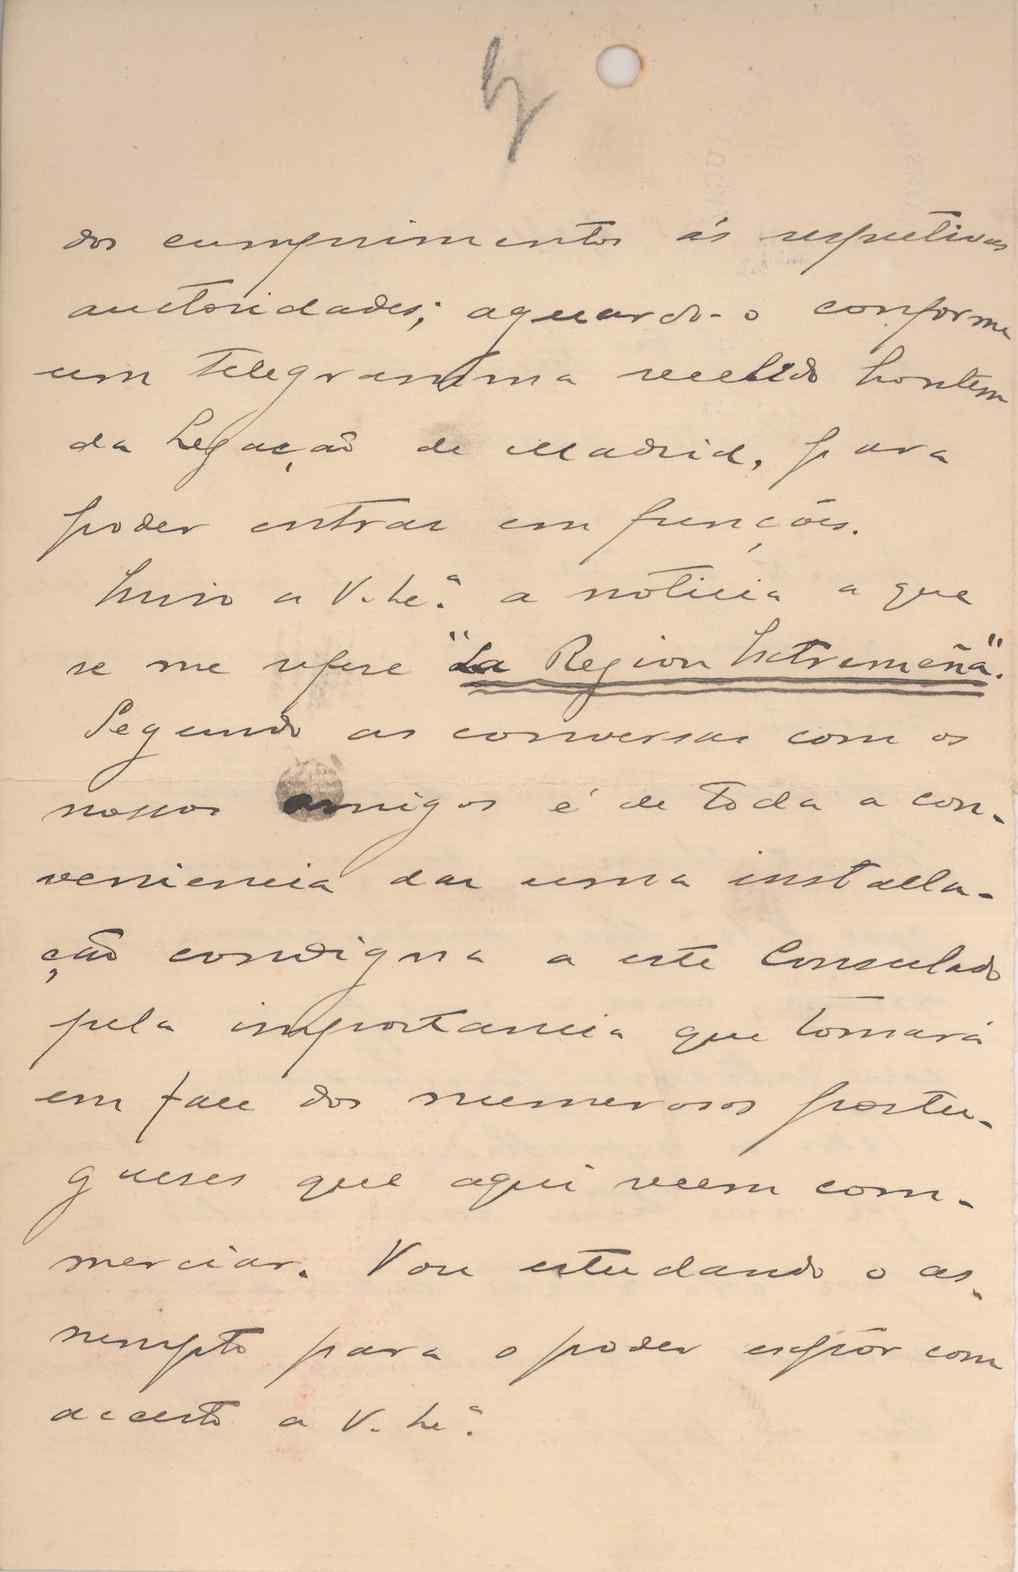 4
dos cumprimentos ás respetivas
auctoridades; aguardo-o conforme
um telegramma recebido hontem
da Legação de Madrid, para
poder entrar em funções.
Envio a V. Ex.ª a noticia a que
se me refere "La Region Extremeña".
Segundo as conversas com os
nossos amigos é de toda a con-
veniencia dar uma installa-
ção condigna a este Consulado
pela importancia que tomará
em face dos numerosos portu-
gueses que aqui veem com-
merciar. Vou estudando o as-
sumpto para o poder expôr com
acerto a V. Ex.ª